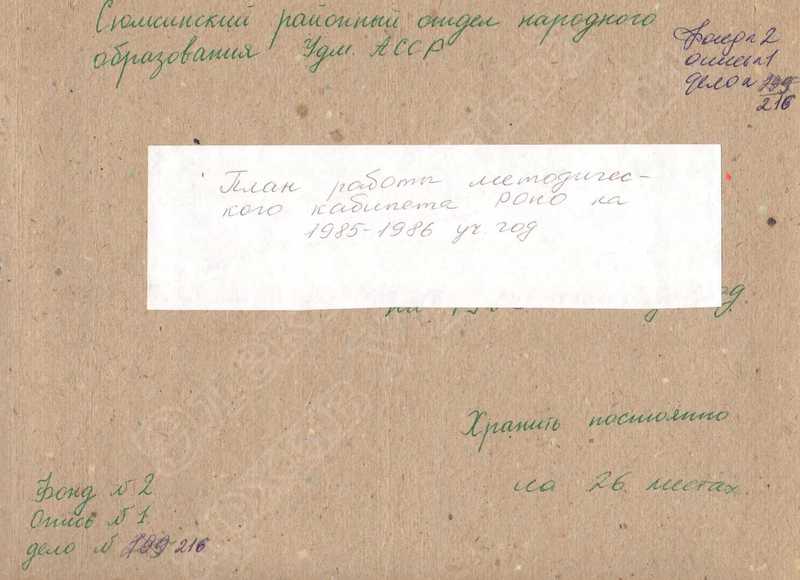 Сюмсинский районный отдел народного
образования Удм. АССР
Фонд № 2
опись № 1
дело № 199
216
План работы методичес-
кого кабинета РОНО на
1985-1986 уч. год
на
Хранить постоянно
на 26 листах.
Фонд № 2
Опись № 1
дело № 199 216